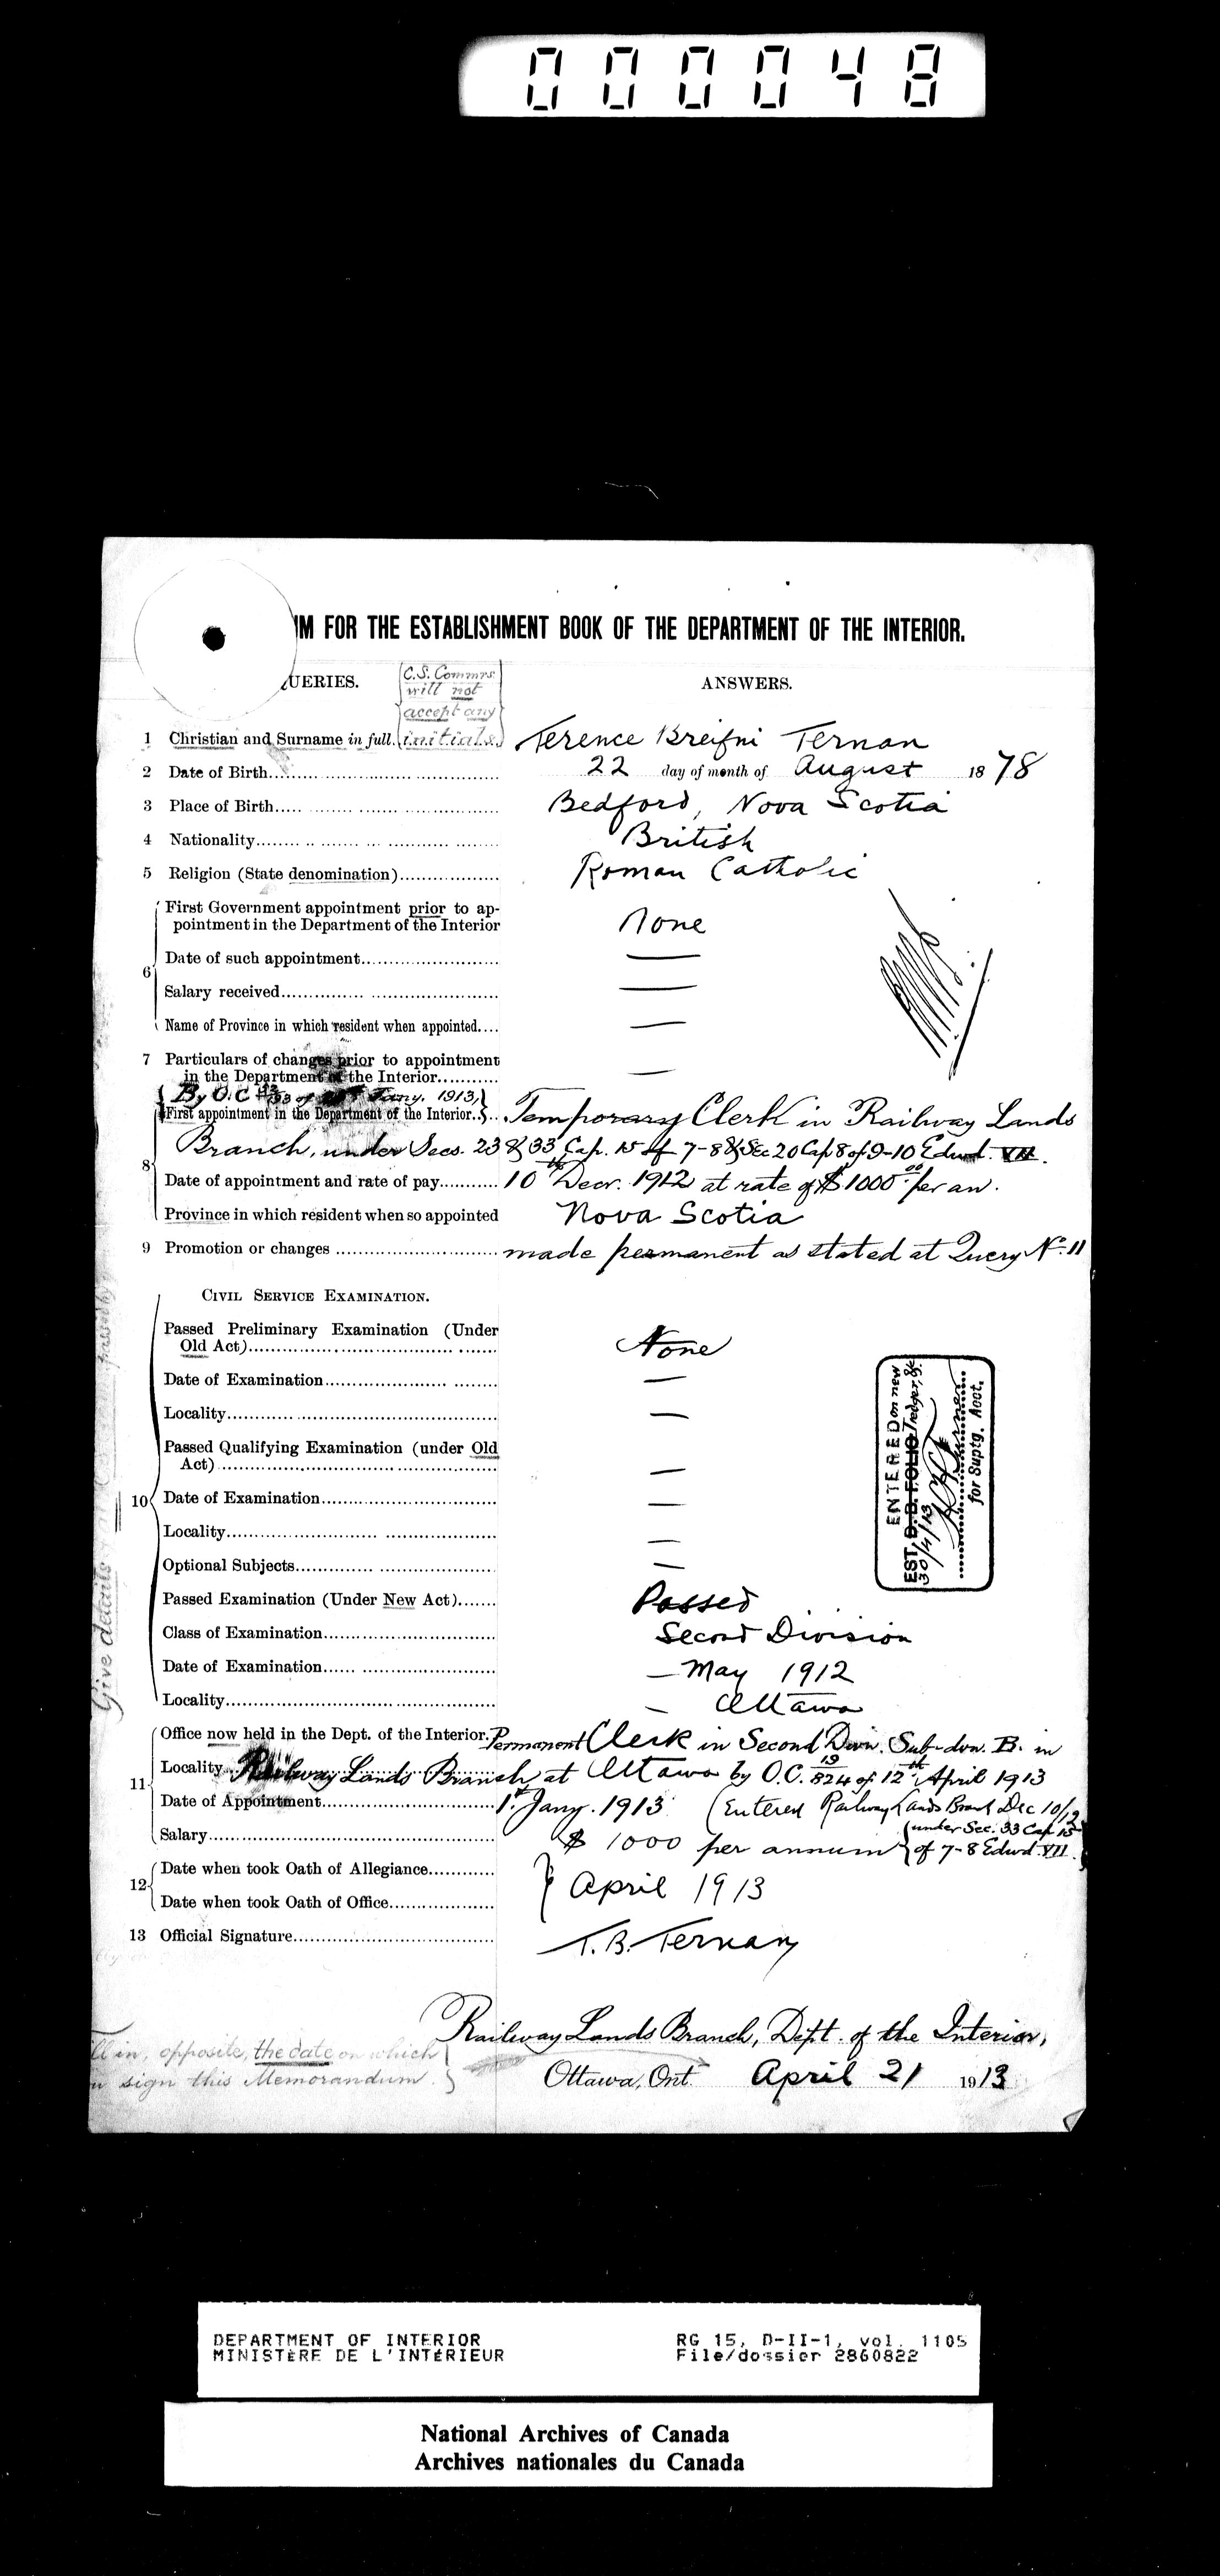 000048
UM FOR THE ESTABLISHMENT BOOK OF THE DEPARTMENT OF THE INTERIOR.
QUERIES.
C.S. Commrs.
will not
accept any
initials.
ANSWERS.
1 Christian and Surname in full. Terence Breifni Ternan
2 Date of Birth 22 day of month of August 1878
3 Place of Birth Bedford, Nova Scotia
4 Nationality British
5 Religion (State denomination) Roman Catholic
6 First Government appointment prior to ap-
pointment in the Department of the Interior None
Date of such appointment —
Salary received —
Name of Province in which resident when appointed —
7 Particulars of changes prior to appointment
in the Department of the Interior —
By O.C. of Jany. 1913,
8 First appointment in the Department of the Interior Temporary Clerk in Railway Lands
Branch, under Secs. 23 & 33 Cap. 15 of 7-8 & Sec 20 Cap 8 of 9-10 Edwd. VII.
Date of appointment and rate of pay 10th Decr. 1912 at rate of $1000.00 per an.
Province in which resident when so appointed Nova Scotia
9 Promotion or changes made permanent as stated at Query No. 11
CIVIL SERVICE EXAMINATION.
10 Passed Preliminary Examination (Under
Old Act) None
Date of Examination —
Locality —
Passed Qualifying Examination (under Old
Act) —
Date of Examination —
Locality —
Optional Subjects —
Passed Examination (Under New Act) Passed
Class of Examination Second Division
Date of Examination — May 1912
Locality — Ottawa
Give details
ENTERED on new
EST. B. B. FOLIO Ledger, &c
30/4/13
for Suptg. Acct.
11 Office now held in the Dept. of the Interior. Permanent Clerk in Second Divn. Sub-dvn. B. in
Locality Railway Lands Branch at Ottawa by O.C. 19/824 of 12th April 1913
Date of Appointment 1st Jany. 1913 (Entered Railway Lands Branch Dec 10/12
under Sec. 33 Cap 15
Salary $ 1000 per annum of 7-8 Edwd. VII.
12 Date when took Oath of Allegiance
April 1913
Date when took Oath of Office
13 Official Signature T. B. Ternan
Railway Lands Branch, Dept. of the Interior,
ll in, opposite, the date on which
u sign this Memorandum.
Ottawa, Ont. April 21 1913
DEPARTMENT OF INTERIOR
MINISTÈRE DE L'INTÉRIEUR
RG 15, D-II-1, vol. 1105
File/dossier 2860822
National Archives of Canada
Archives nationales du Canada